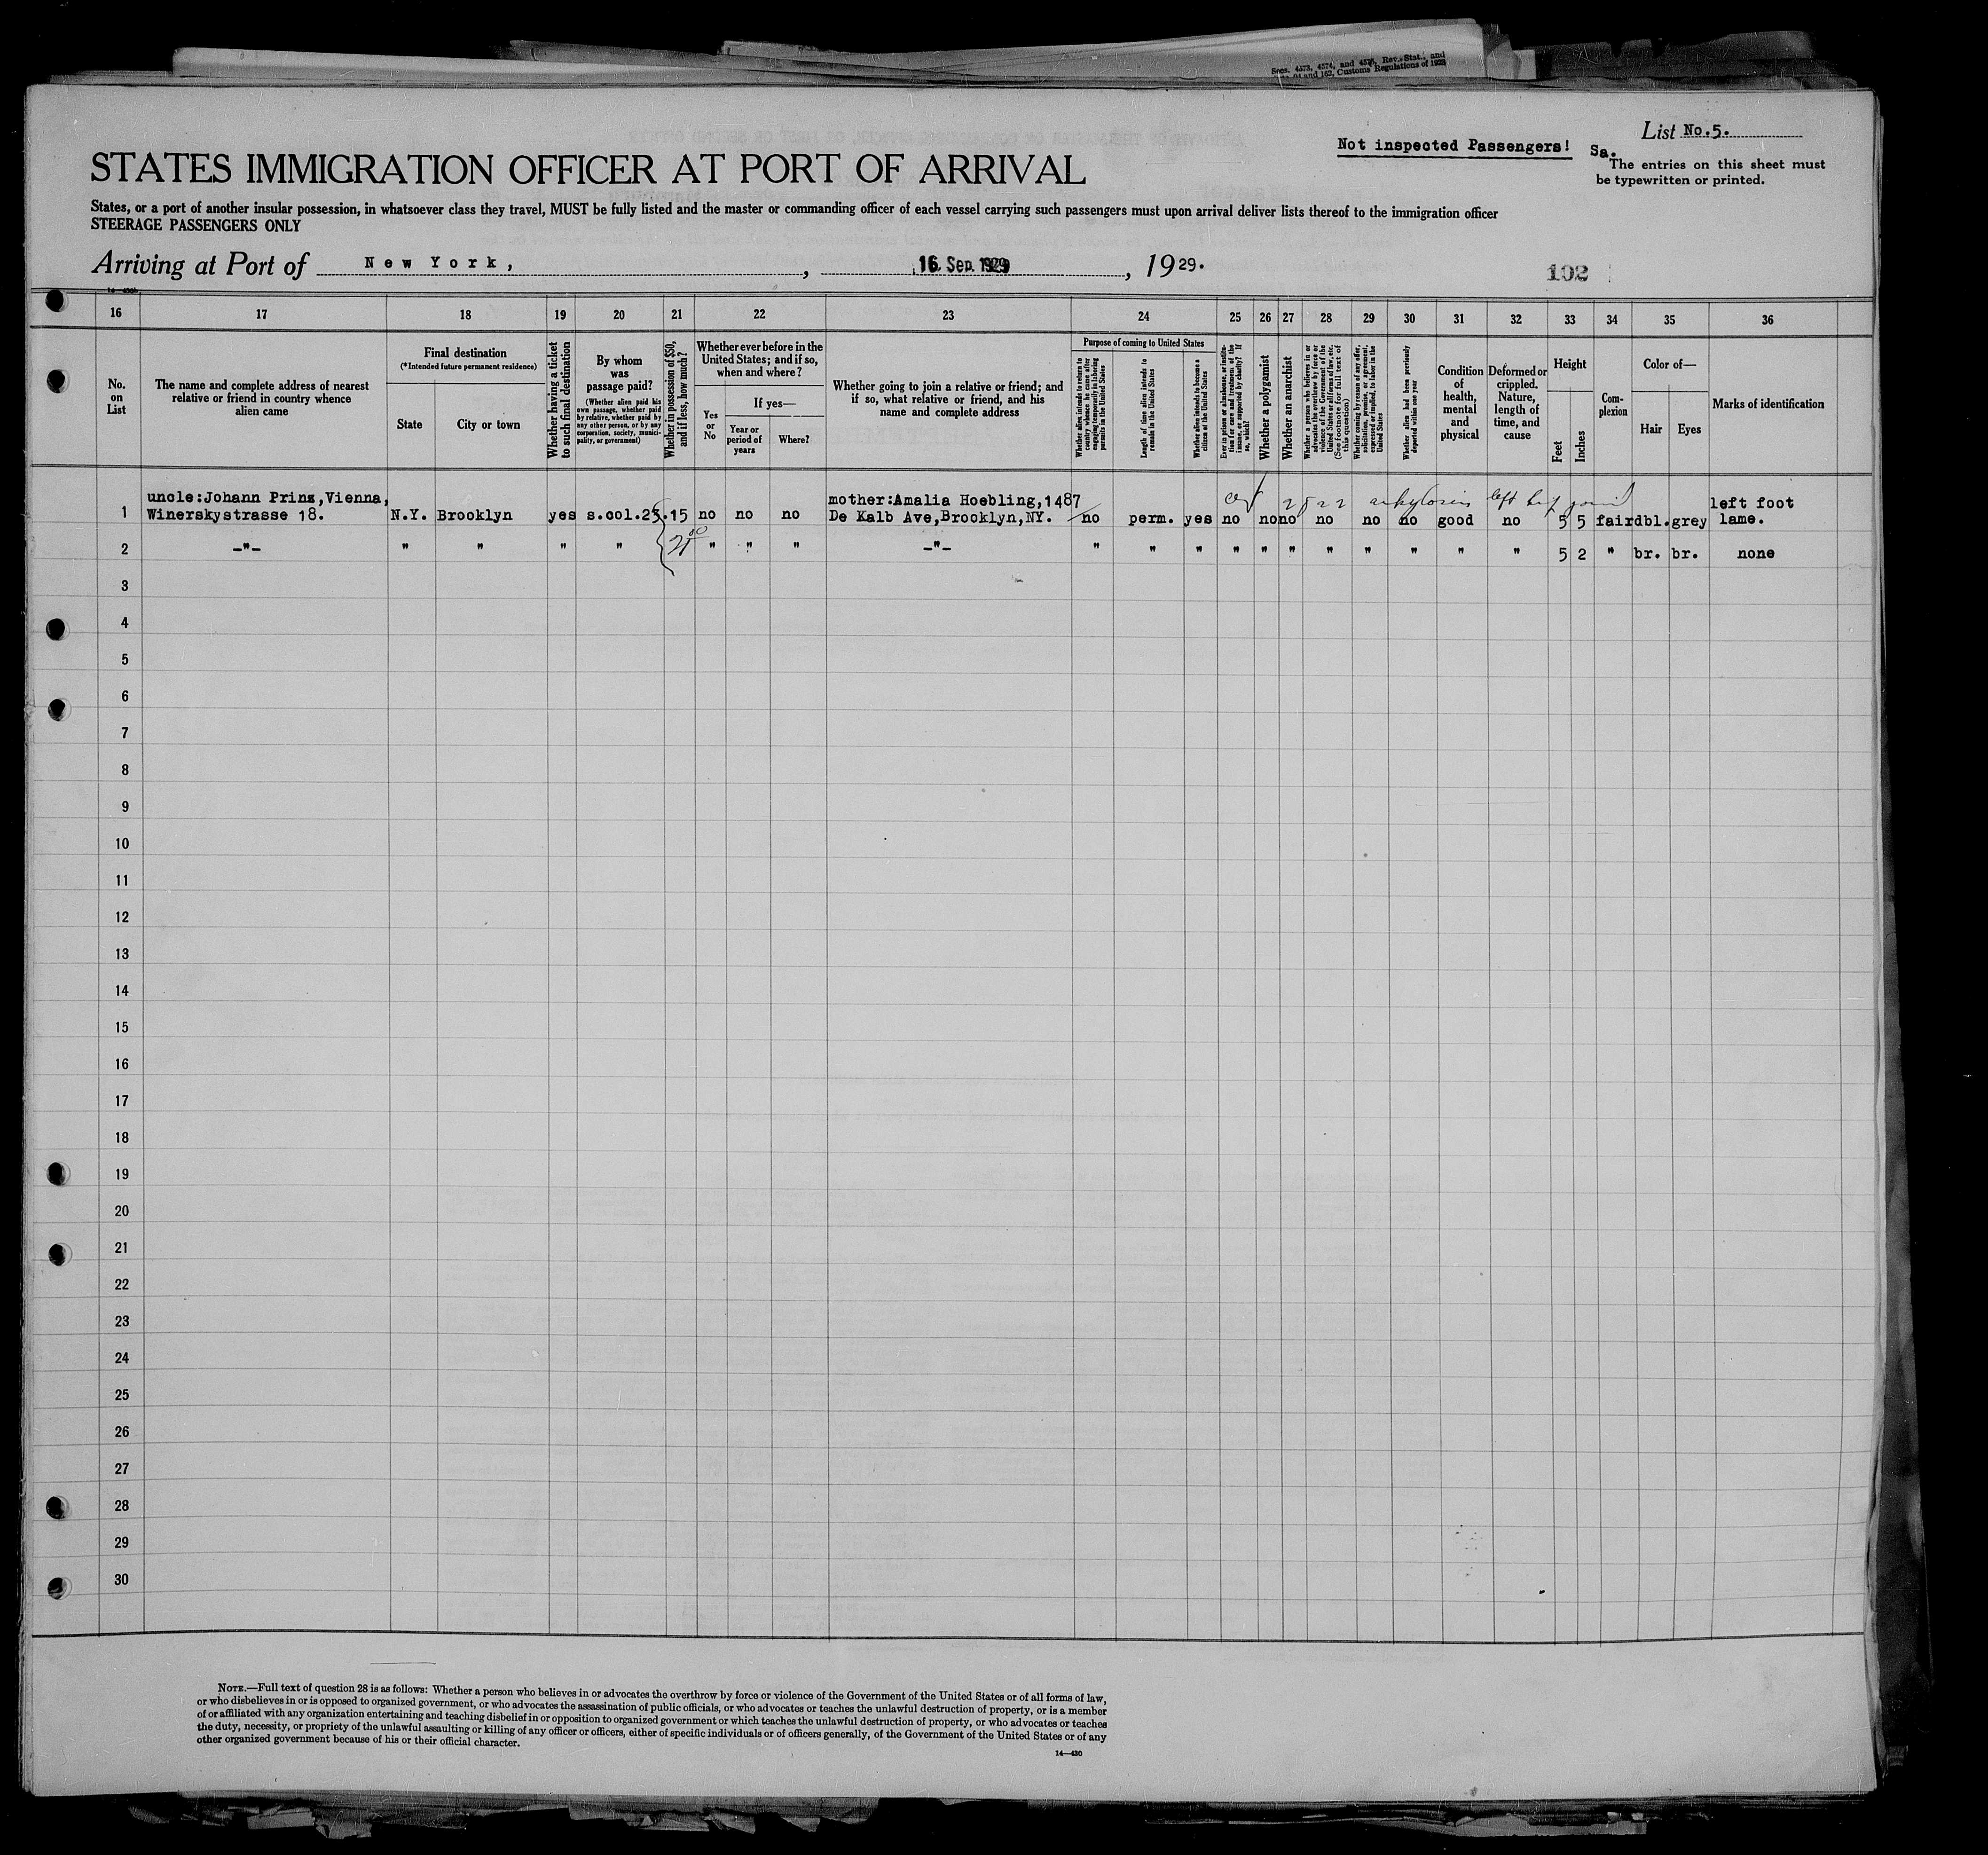 Secs. 4573, 4574, and 4576, Rev. Stat., and
and 162, Customs Regulations of 1923
List No.5.
Not inspected Passengers!
Sa.
The entries on this sheet must
be typewritten or printed.
STATES IMMIGRATION OFFICER AT PORT OF ARRIVAL
States, or a port of another insular possession, in whatsoever class they travel, MUST be fully listed and the master or commanding officer of each vessel carrying such passengers must upon arrival deliver lists thereof to the immigration officer
STEERAGE PASSENGERS ONLY
Arriving at Port of New York, , 16. Sep. 1929 , 1929.
102
16 17 18 19 20 21 22 23 24 25 26 27 28 29 30 31 32 33 34 35 36
No.
on
List
The name and complete address of nearest
relative or friend in country whence
alien came
Final destination
(*Intended future permanent residence)
State
City or town
Whether having a ticket
to such final destination
By whom
was
passage paid?
(Whether alien paid his
own passage, whether paid
by relative, whether paid by
any other person, or by any
corporation, society, munici-
pality, or government)
Whether in possession of $50,
and if less, how much?
Whether ever before in the
United States; and if so,
when and where?
Yes
or
No
If yes—
Year or
period of
years
Where?
Whether going to join a relative or friend; and
if so, what relative or friend, and his
name and complete address
Purpose of coming to United States
Whether alien intends to return to
country whence he came after
engaging temporarily in laboring
pursuits in the United States
Length of time alien intends to
remain in the United States
Whether alien intends to become a
citizen of the United States
Ever in prison or almshouse, or institu-
tion for care and treatment of the
insane, or supported by charity? If
so, which?
Whether a polygamist
Whether an anarchist
Whether a person who believes in or
advocates the overthrow by force or
violence of the Government of the
United States or all forms of law, etc.
(See footnote for full text of
this question)
Whether coming by reason of any offer,
solicitation, promise, or agreement,
expressed or implied, to labor in the
United States
Whether alien had been previously
deported within one year
Condition
of
health,
mental
and
physical
Deformed or
crippled.
Nature,
length of
time, and
cause
Height
Feet
Inches
Com-
plexion
Color of—
Hair
Eyes
Marks of identification
cert 2522 ankylosis left hip joint
uncle:Johann Prinz,Vienna, mother:Amalia Hoebling,1487 left foot
1 Winerskystrasse 18. N.Y. Brooklyn yes s.col.25.15 no no no De Kalb Ave,Brooklyn,NY. no perm. yes no no no no no no good no 5 5 fair dbl. grey lame.
2 -"- " " " " " " " -"- " " " " " " " " " " " 5 2 " br. br. none
3
4
5
6
7
8
9
10
11
12
13
14
15
16
17
18
19
20
21
22
23
24
25
26
27
28
29
30
NOTE.—Full text of question 28 is as follows: Whether a person who believes in or advocates the overthrow by force or violence of the Government of the United States or of all forms of law,
or who disbelieves in or is opposed to organized government, or who advocates the assassination of public officials, or who advocates or teaches the unlawful destruction of property, or is a member
of or affiliated with any organization entertaining and teaching disbelief in or opposition to organized government or which teaches the unlawful destruction of property, or who advocates or teaches
the duty, necessity, or propriety of the unlawful assaulting or killing of any officer or officers, either of specific individuals or of officers generally, of the Government of the United States or of any
other organized government because of his or their official character.
14—430